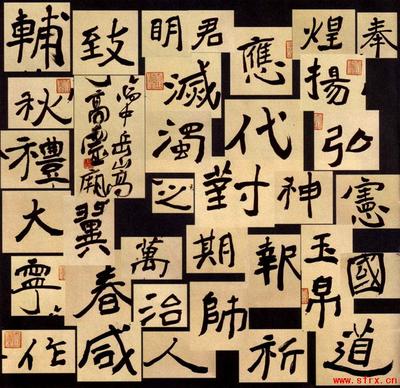 輔
致
明
君
應
煌
奉
秋
滅
揚
濁
代
弘
禮
之
對
神
憲
大
翼
萬
期
報
玉帛
國
寧
春
治
帥
作
咸
人
祈
道
www.sfrx.cn